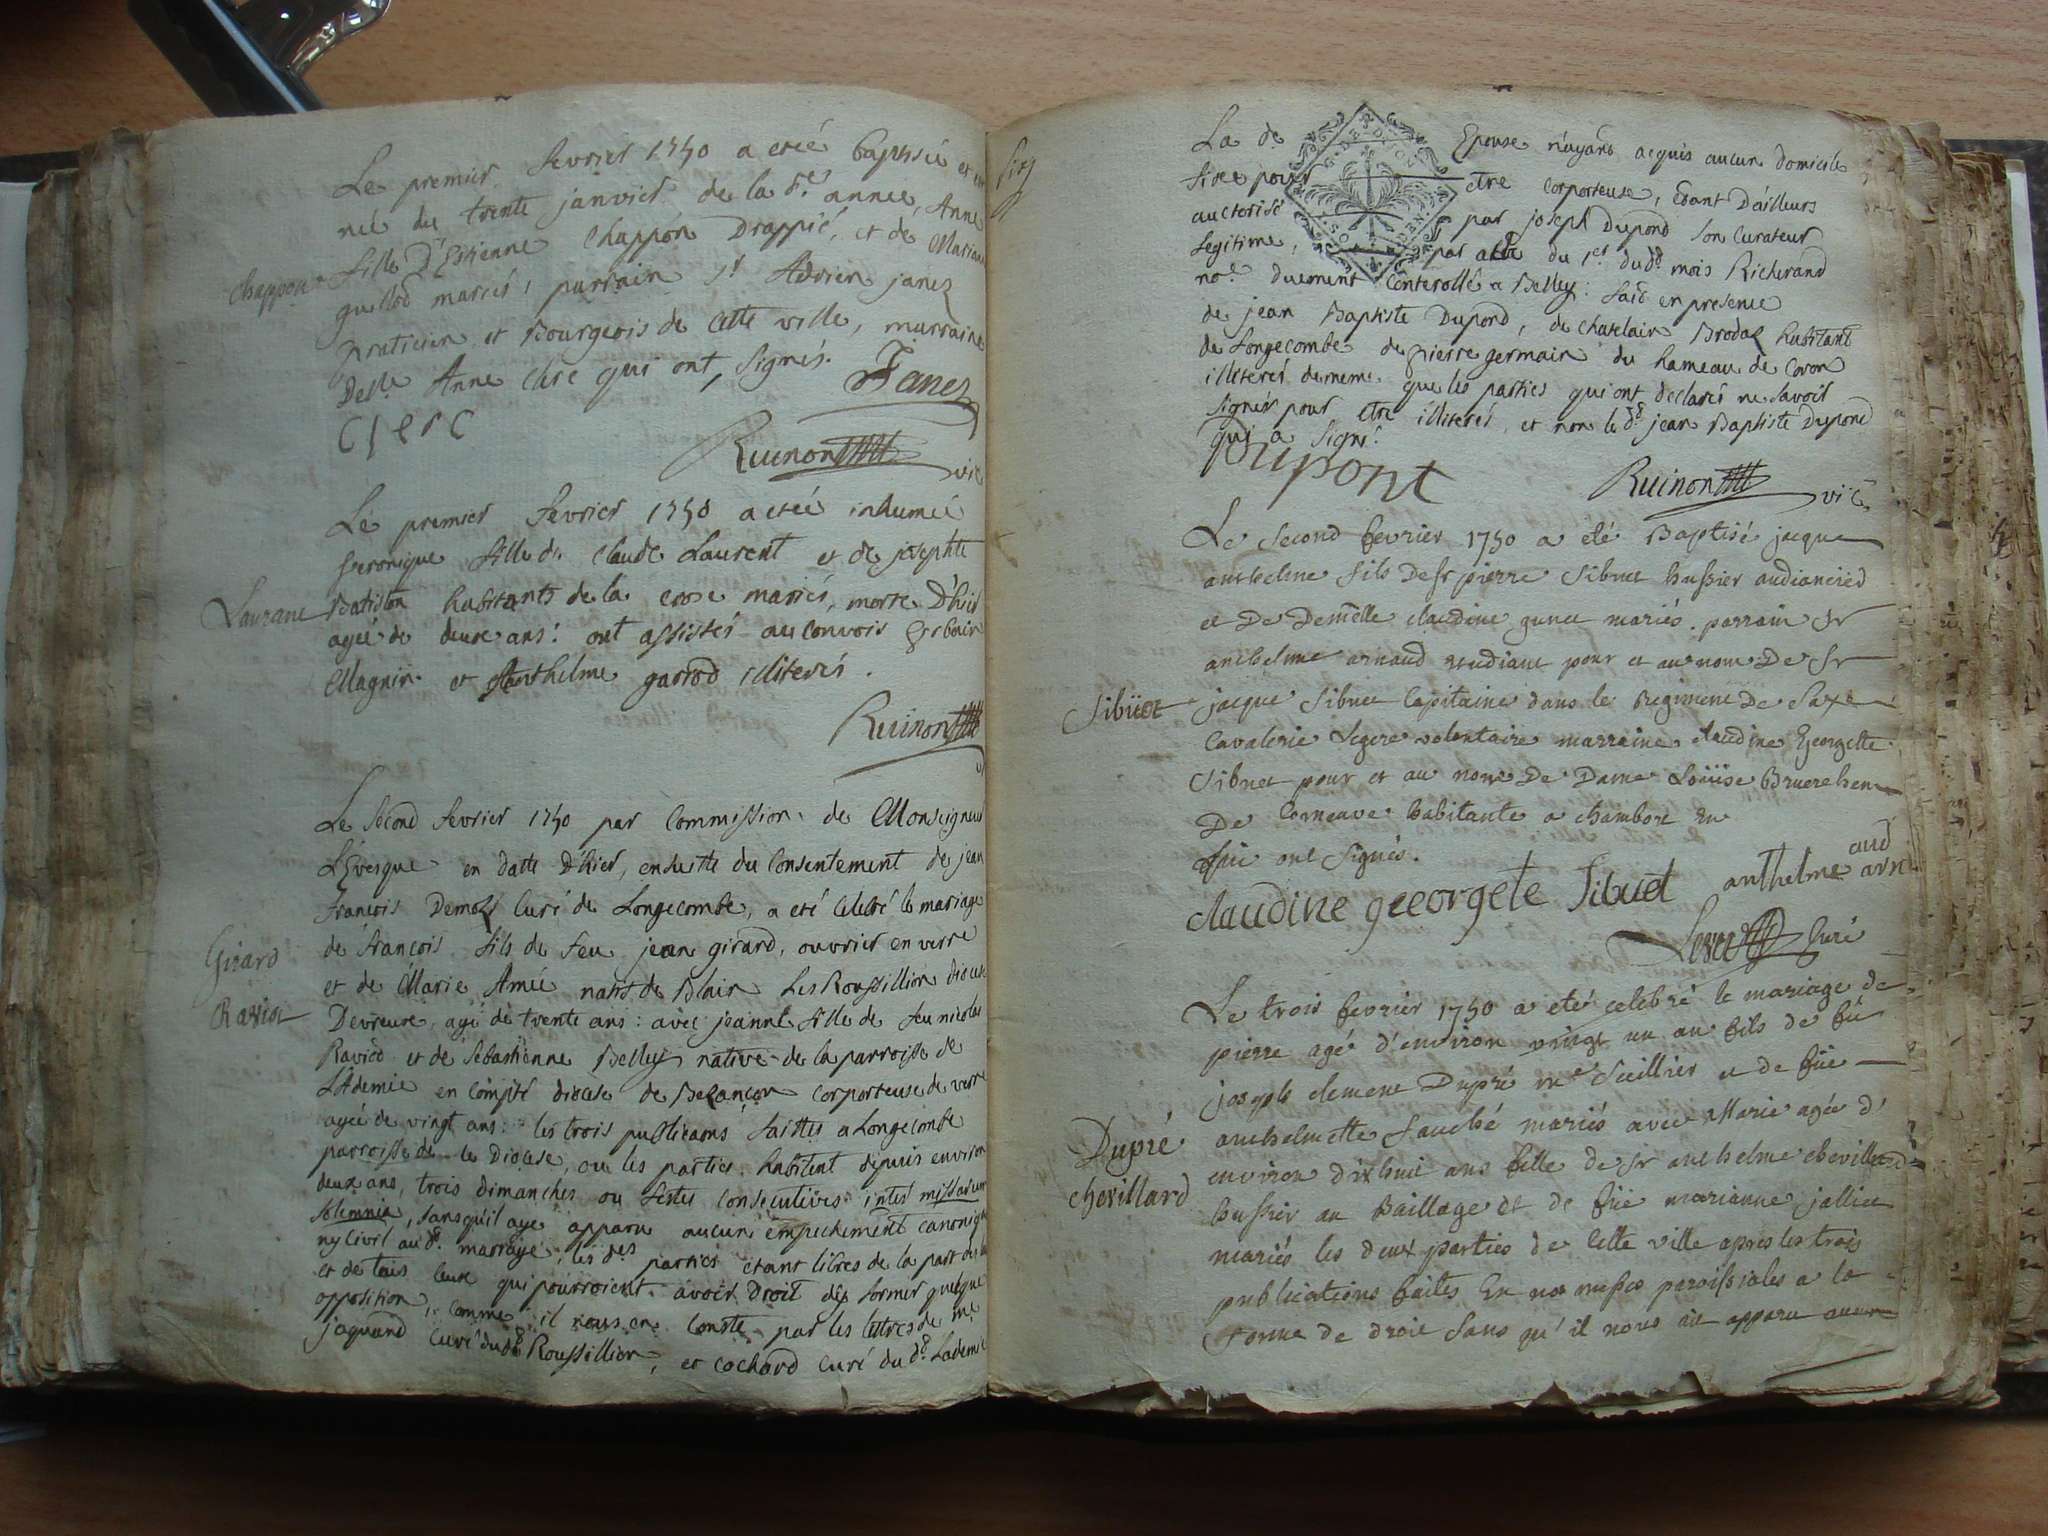 Le premier fevrier 1750 a eteé baptisée et
née du trente janvier de la de. année, Anne
Chappon
fille D'Estienne Chappon Drappié, et de Mariane
guillod mariés, parrain Sr Adrien janez
praticien et Bourgeois de Cette ville, marraine
Delle. Anne clerc qui ont signés.
Janez
Clerc
Ruinon vic
Le premier fevrier 1750 a eteé inhumée
veronique fille de Claude Laurent et de josephte
Laurant
Batiston habitants de la mariés, morte D'hier
ageé de deux ans: ont assistés au convois
Magnin et Anthelme garrod illiterés.
Ruinon
Le second fevrier 1750 par Commission de Monseigneur
L'Evesque en datte D'hier, ensuitte du Consentement de jean
françois Demolz Curé de Longecombe, a eté Celebré le mariage
Girard
Raviot
de françois fils de feu jean girard, ouvrier en verre
et de Marie Amée natif de Blain Les Roussillion diocese
agé de trente ans: avec jeanne fille de feu nicolas
Raviod et de Sebastienne Belley native de la parroisse de
L'Ademie en Compté diocese de Besançon Corporteuse de verre
ageé de vingt ans: les trois publicaons faittes a Longecombe
parroisse de ce Diocese, ou les parties habitent depuis environ
deux ans, trois dimanches ou festes Consecutives inter missarum
solemnia, sans qu'il aye apparu aucun empechement canonique
ny Civil au d. marriage, les des. parties etant libres de la part
et de tous Ceux qui pourroient avoir Droit d'y former quelque
opposition, comme il nous en Conste par les lettres de me
jaquand Curé dud Roussillion, et Cochard Curé du d. Lademie
La de Epouse n'ayant acquis aucun domicile
fixe pour etre Corporteuse, Etant D'ailleurs
auctorisé par joseph Dupond son Curateur
legitime, par acte du 1er. dud. mois Richerand
nore. Duement Conterollé a Belley: fait en presence
de jean Baptiste Dupond, de Chatelain Brodaz habitant
de Longecombe de pierre germain du hameau de Coron
illiterés de meme que les parties qui ont declarés ne scavoir
signer pour etre illiterés, et non le d. jean Baptiste Dupond
qui a signé.
Dupont
Ruinon vic
Le second fevrier 1750 a eté Baptisé jacque
anthelme fils De Sr pierre Sibuet hussier audiancied
et De Demelle claudine gunet mariés. parrain Sr
anthelme arnaud etudiant pour et au nom De Sr
Sibüet
jacque Sibuet Capitaine dans le Regiment De Saxe
Cavalerie Legere volontaire marraine claudine Georgette
Sibuet pour et au nom De Dame Loüise
De Corneave habitante a
qui ont signés.
claudine geeorgete Sibuet
anthelme arnaud
Curé
Le trois fevrier 1750 a eté celebré le mariage de
pierre agé d'environ vingt un an fils de fû
joseph clement Dupré me Sieillier et de fûe
Dupré
Chevillard
anthelmette Fauché mariés avec Marie agée d'
environ dix huit ans fille de Sr anthelme chevillard
hussier au Baillage et de fûe marianne jallier
mariés les deux parties de Cette ville apres les trois
publications faites En nos messes paroissiales a la
forme de droit sans qu'il nous ait apparu aucun